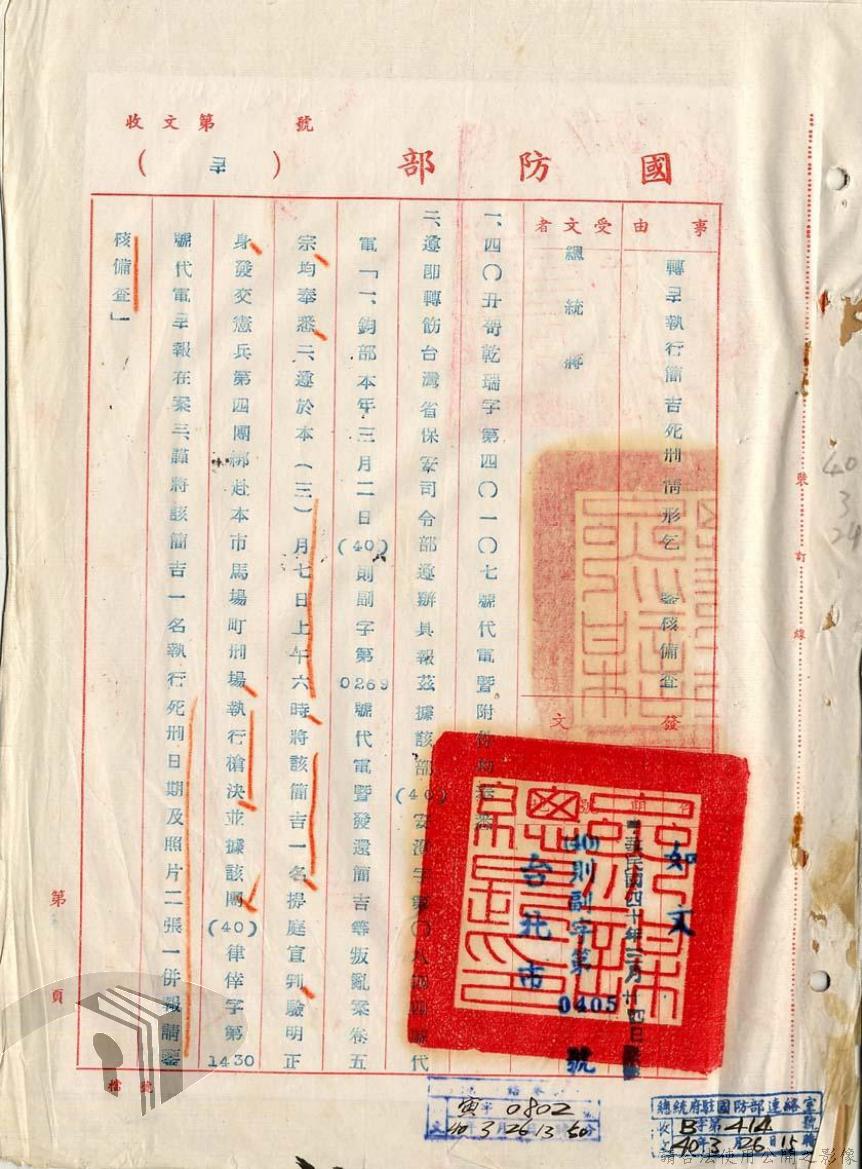 收文第 號
國防部（呈）
事由
轉呈執行簡吉死刑情形乞 鑒核備查
受文者
總統蔣
發文
如文
中華民國四十年三月廿四日
(40)則副字第0405號
台北市
一、四〇丑哿乾瑞字第四〇一〇七號代電暨附件均奉悉
二、遵即轉飭台灣省保安司令部遵辦具報茲據該部(40)安澄字第〇八四四號代
電「一、鈞部本年三月二日(40)則副字第0269號代電暨發還簡吉等叛亂案卷五
宗均奉悉二、遵於本（三）月七日上午六時將該簡吉一名提庭宣判驗明正
身發交憲兵第四團綁赴本市馬場町刑場執行槍決並據該團(40)律倖字第1430
號代電呈報在案三、謹將該簡吉一名執行死刑日期及照片二張一併報請鑒
核備查」
裝訂線
第 頁
檔號
40
3
24
寅字0802
40 3月26 13 50分
總統府駐國防部連絡室
收B字第414號
文40年3月26日15時
請合法使用公開之影像